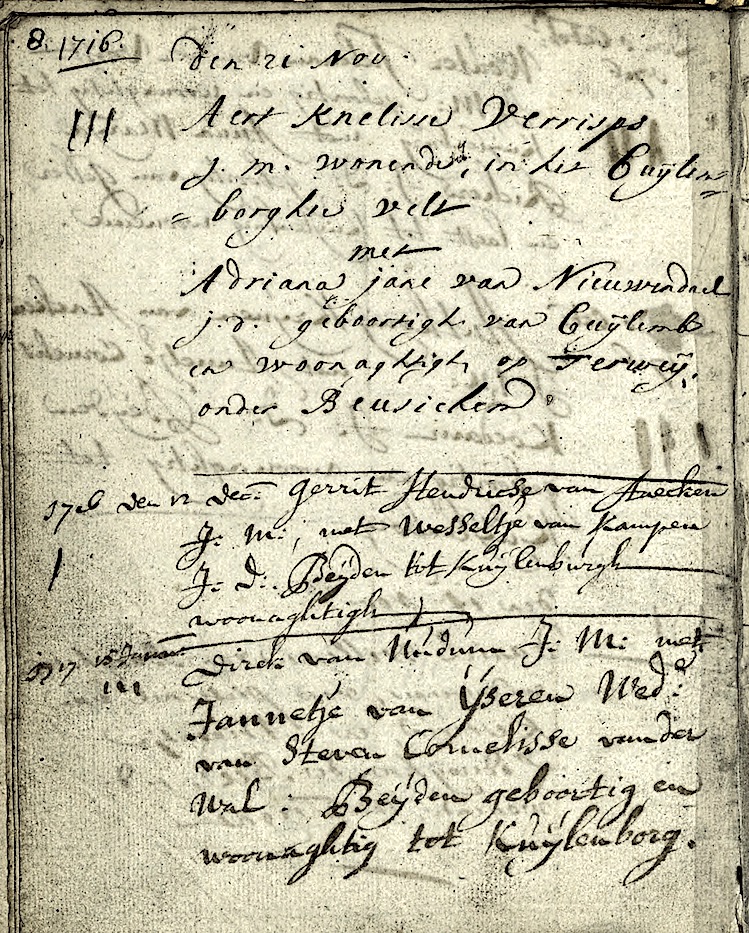 8 1716.
den 21 Nov
III Aert Knelisse Verrisps
j. m. wonende, in het Cuÿlen=
= borghse velt
met
Adriana jans van Nieuwendael
j. d. geboortigh van Cuÿlemb
en woonaghtigh op Terweÿ,
onder Beusichem
1716 den 12 Dec: Gerrit Hendrickse van
I J: M:, met Wesseltje van Kampen
J: D: Beÿden tot Kuÿlenburgh
woonaghtigh
1717 15 Januar: Dirck van J: M: met
III Jannetje van Ÿseren Wed:
van Steven Cornelisse van der
Wal: Beÿden geboortig en
woonaghtig tot Kuÿlenborg.